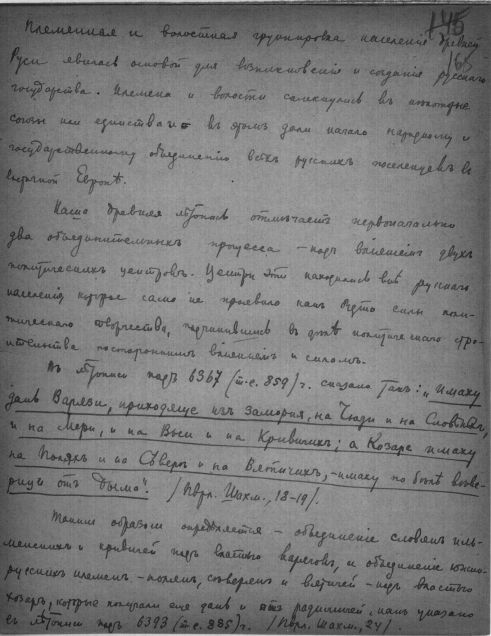 145
165
Племенная и волостная группировка населенія древней
Руси явилась основой для возникновенія и созданія русскаго
государства. Племена и волости сомкнулись въ
союзы или единства и въ этомъ дали начало народному и
государственному объединенію всѣхъ русскихъ поселенцевъ въ
восточной Европѣ.
Наша древняя лѣтопись отмѣчаетъ первоначально
два объединительныхъ процесса – подъ вліяніемъ двухъ
политическихъ центровъ. Центры эти находились внѣ русскаго
населенія которое само не проявило какъ будто силы поли-
тическаго творчества, подчинившись въ дѣлѣ политическаго стро-
ительства постороннимъ вліяніямъ и силамъ.
Въ лѣтописи подъ 6367 (т.е. 859) г. сказано такъ: „Имаху
дань Варязи, приходяще изъ заморія, на Чюди и на Словѣнѣхъ,
и на Мери, и на Веси и на Кривичихъ; а Козаре имаху
на Поляхъ и на Сѣверѣ и на Вятичихъ, – имаху по бѣлѣ вѣве-
рици отъ дыма". / Шахм., 18-19/.
Такимъ образомъ опредѣляется – объединеніе словенъ иль-
менскихъ и кривичей подъ властью варяговъ, и объединеніе южно-
русскихъ племенъ – полянъ, сѣверянъ и вятичей – подъ властью
хозаръ, которые получали еще дань и отъ радимичей, какъ указано
въ лѣтописи подъ 6393 (т.е. 885) г. / Шахм., 24/.